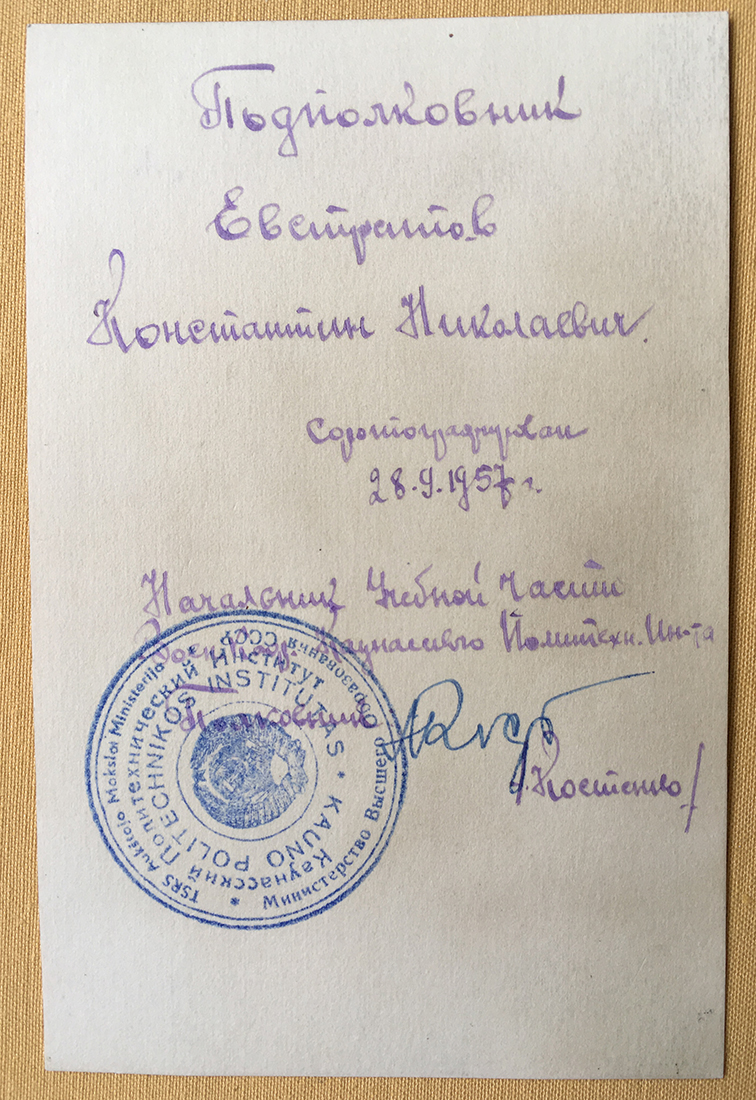 Подполковник
Евстратов
Константин Николаевич.
Сфотографирован
28.9.1957 г.
Начальник Учебной Части
Воен. Каф. Каунасского Политехн. Ин-та
Полковник
/Костенко/
TSRS Aukštojo Mokslo Ministerija * Министерство Высшего Образования СССР
Каунасский Политехнический Институт
* KAUNO POLITECHNIKOS INSTITUTAS *